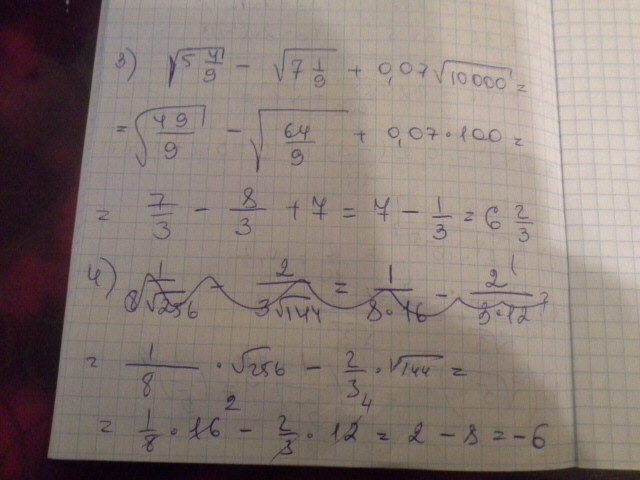 3) √5 4/9 - √7 1/9 + 0,07√10000 =
= √49/9 - √64/9 + 0,07·100 =
= 7/3 - 8/3 + 7 = 7 - 1/3 = 6 2/3
4) 1/8√256 - 2/3√144 = 1/8·16 - 2/3·12 =
= 1/8 · √256 - 2/3 · √144 =
= 1/8 · 16 2 - 2/3 · 12 4 = 2 - 8 = -6